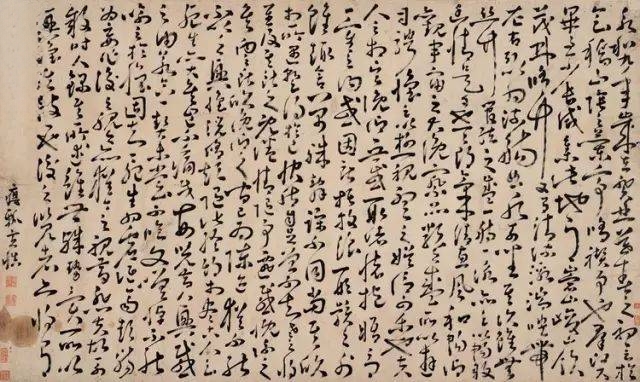 永和九年歲在癸丑暮春之初會於
會稽山陰之蘭亭脩禊事也群賢
畢至少長咸集此地有崇山峻領
茂林脩竹又有清流激湍暎帶
左右引以為流觴曲水列坐其次雖無
絲竹管弦之盛一觴一詠亦足以暢敘
幽情是日也天朗氣清惠風和暢仰
觀宇宙之大俯察品類之盛所以遊
目騁懷足以極視聽之娛信可樂也夫
人之相與俯仰一世或取諸懷抱晤言
一室之內或因寄所託放浪形骸之外
雖趣舍萬殊靜躁不同當其欣
於所遇暫得於己快然自足不知老之將
至及其所之既倦情隨事遷感慨係之
矣向之所欣俛仰之間已為陳迹猶不能
不以之興懷況脩短隨化終期於盡古人云
死生亦大矣豈不痛哉每覽昔人興感
之由若合一契未嘗不臨文嗟悼不能
喻之於懷固知一死生為虛誕齊彭殤
為妄作後之視今亦猶今之視昔悲夫故列
敘時人錄其所述雖世殊事異所以
興懷其致一也後之覽者亦將有
癭瓢黃慎